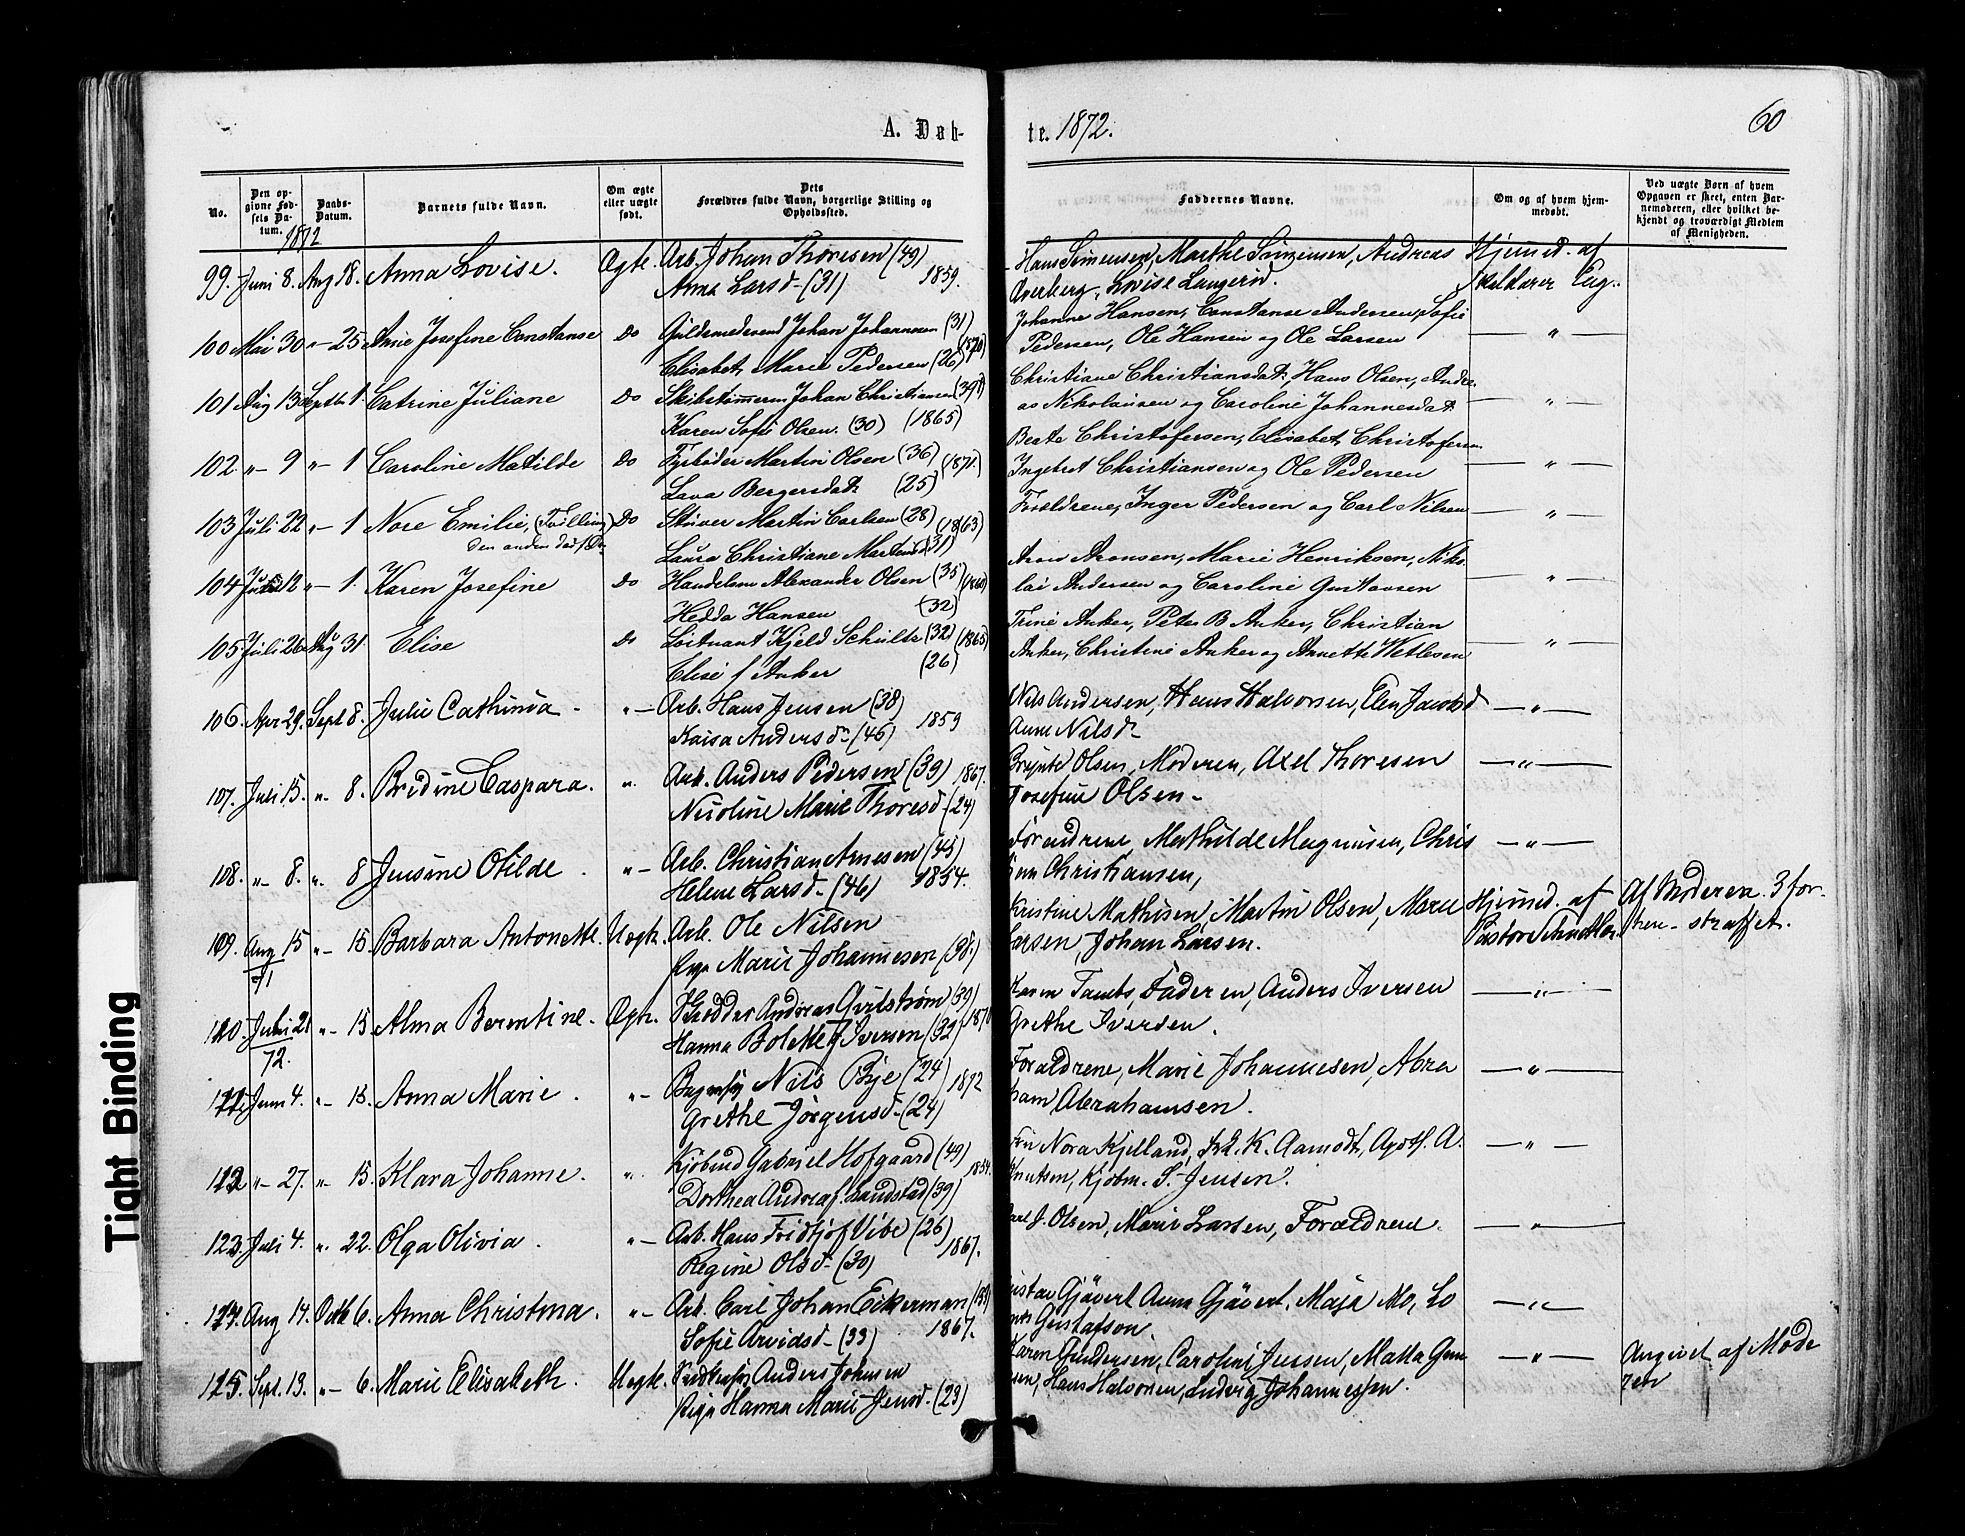 A. Døb-
te. 1872.
60
No.
Den opgivne Fødsels Datum.
Daabs-Datum.
Barnets fulde Navn.
Om ægte eller uægte født.
Dets Forældres fulde Navn, borgerlige Stilling og Opholdssted.
Faddernes Navne.
Om og af hvem hjemmedøbt.
Ved uægte Børn af hvem Opgaven er skeet, enten Barnemoderen, eller hvilket bekjendt og troværdigt Medlem af Menigheden.
1872
99. Juni 8. Aug 18. Anna Lovise. Ægte. Arb. Johan Thoresen (49) Hans Simensen, Marthe Simensen, Andreas Hjemd. af
Anna Larsd- (31) 1859. Averberg, Lovise Langerud. Eug.
100 Mai 30 "- 25 Anne Josefine Constanse Do Guldsmedsvend Johan Johannesen (31) Johanne Hansen, Constanse Andersen, Sofie
Elisabet Marie Pedersen (26) (1870) Pedersen, Ole Hansen og Ole Larsen — " —
101 Aug 13 Septbr 1 Catrine Juliane Do Skibstømmerm Johan Christiansen (39) Christiane Christiansdat, Hans Olsen, Andre
Karen Sofie Olsen. (30) (1865) as Nikolaisen og Caroline Johannesdat — " —
102 "- 9 "- 1 Caroline Matilde Do Fyrbøder Martin Olsen (36) Beate Christofersen, Elisabet Christofersen
Lava Bergersdat (25) (1871.) Ingebret Christiansen og Ole Pedersen — " —
103 Juli 22 "- 1 Nore Emilie, (Tvilling) Do Skriver Martin Carlsen (28) Forældrene, Inger Pedersen og Carl Nilsen — " —
den anden død f. D. Laura Christiane Martinsd (31) (1863)
104 Juli 12 "- 1. Karen Josefine Do Handelsm Alexander Olsen (35) Aron Aronsen, Marie Henriksen, Niko
Hedda Hansen (32) (1860) lai Andersen og Caroline Gustavsen — " —
105 Juli 26 Aug 31. Elise Do Løitnant Kjeld Schultz (32) (1865) Trine Anker, Peter B Anker, Christian
Elise f Anker (26) Anker, Christine Anker og Annette Wetlesen — " —
106. Apr 29. Sept 8. Julie Cathinca - "- Arb. Hans Jensen (38) Nils Andersen, Hans Halvorsen, Elen Jacobsd — " —
Kaisa Andersd- (46) 1859 Anne Nilsd-
107. Juli 15. ". 8. Bredine Caspara. ". Arb. Anders Pedersen (39) 1867. Olsen, Moderen, Axel Thoresen — " —
Nicoline Marie Thoresd- (24) Josefine Olsen-
108. "- 8. ". 8 Jensine Otilde . "- Arb. Christian Arnesen (45) Forældrene, Mathilde Magnusen, Chris — " —
Helene Larsd- (46) 1854. tian Christiansen,
109. Aug 15 "- 15. Barbara Antonette. Uægte. Arb. Ole Nilsen Kristine Mathisen, Martin Olsen, Marie Hjemd. af Af Moderen. 3 for-
71 Pige Marie Johannesen (38.) Larsen, Johan Larsen. Pastor hen- straffet.
120. Juli 21 "- 15. Alma Berentine. Ægte. Andreas Qvistrøm (39) Karen Tambs, Faderen, Anders Iversen — " —
72. Hanna Bolette f Iversen (32) 1870 Grethe Iversen.
121. Juni 4. "- 15. Anna Marie . "- Bygnsfog Nils Bye (24) 1872 Forældrene, Marie Johannesen, Abra — " —
Grethe Jørgensd- (24) ham Abrahamsen.
122 "- 27. "- 15. Klara Johanne. ". Kjøbmd Gabriel Hofgaard (49) 1854. Fru Nora Kjelland, Frk. K. Aamodt, Apoth. A. — " —
Dorthea Andrea f. Sandstad (39) Knutsen, Kjøbm. S. Jensen.
123. Juli 4. ". 22. Olga Olivia . "- Arb. Hans Fridtjof Vibe (26) Carl J. Olsen, Marie Larsen, Forældrene. — " —
Regine Olsd- (30) 1867.
124. Aug 14. Octb 6. Anna Christina. "- Arb. Carl Johan Eckerman Gustav Gjøvert Anna Gjøvert, Maja Mo, Lo — " —
Sofie Arvidsd- (33) 1867. Gustafson.
125. Sept. 13. "- 6. Marie Elisabeth. Uægte. Anders Johnsen Karen Gundersen, Caroline Jensen, Matta Gun — " — Angivet af Mode
Pige Hanna Marie Jensd- (23) sen, Hans Halvorsen, Ludvig Johannessen. ren
Tight Binding